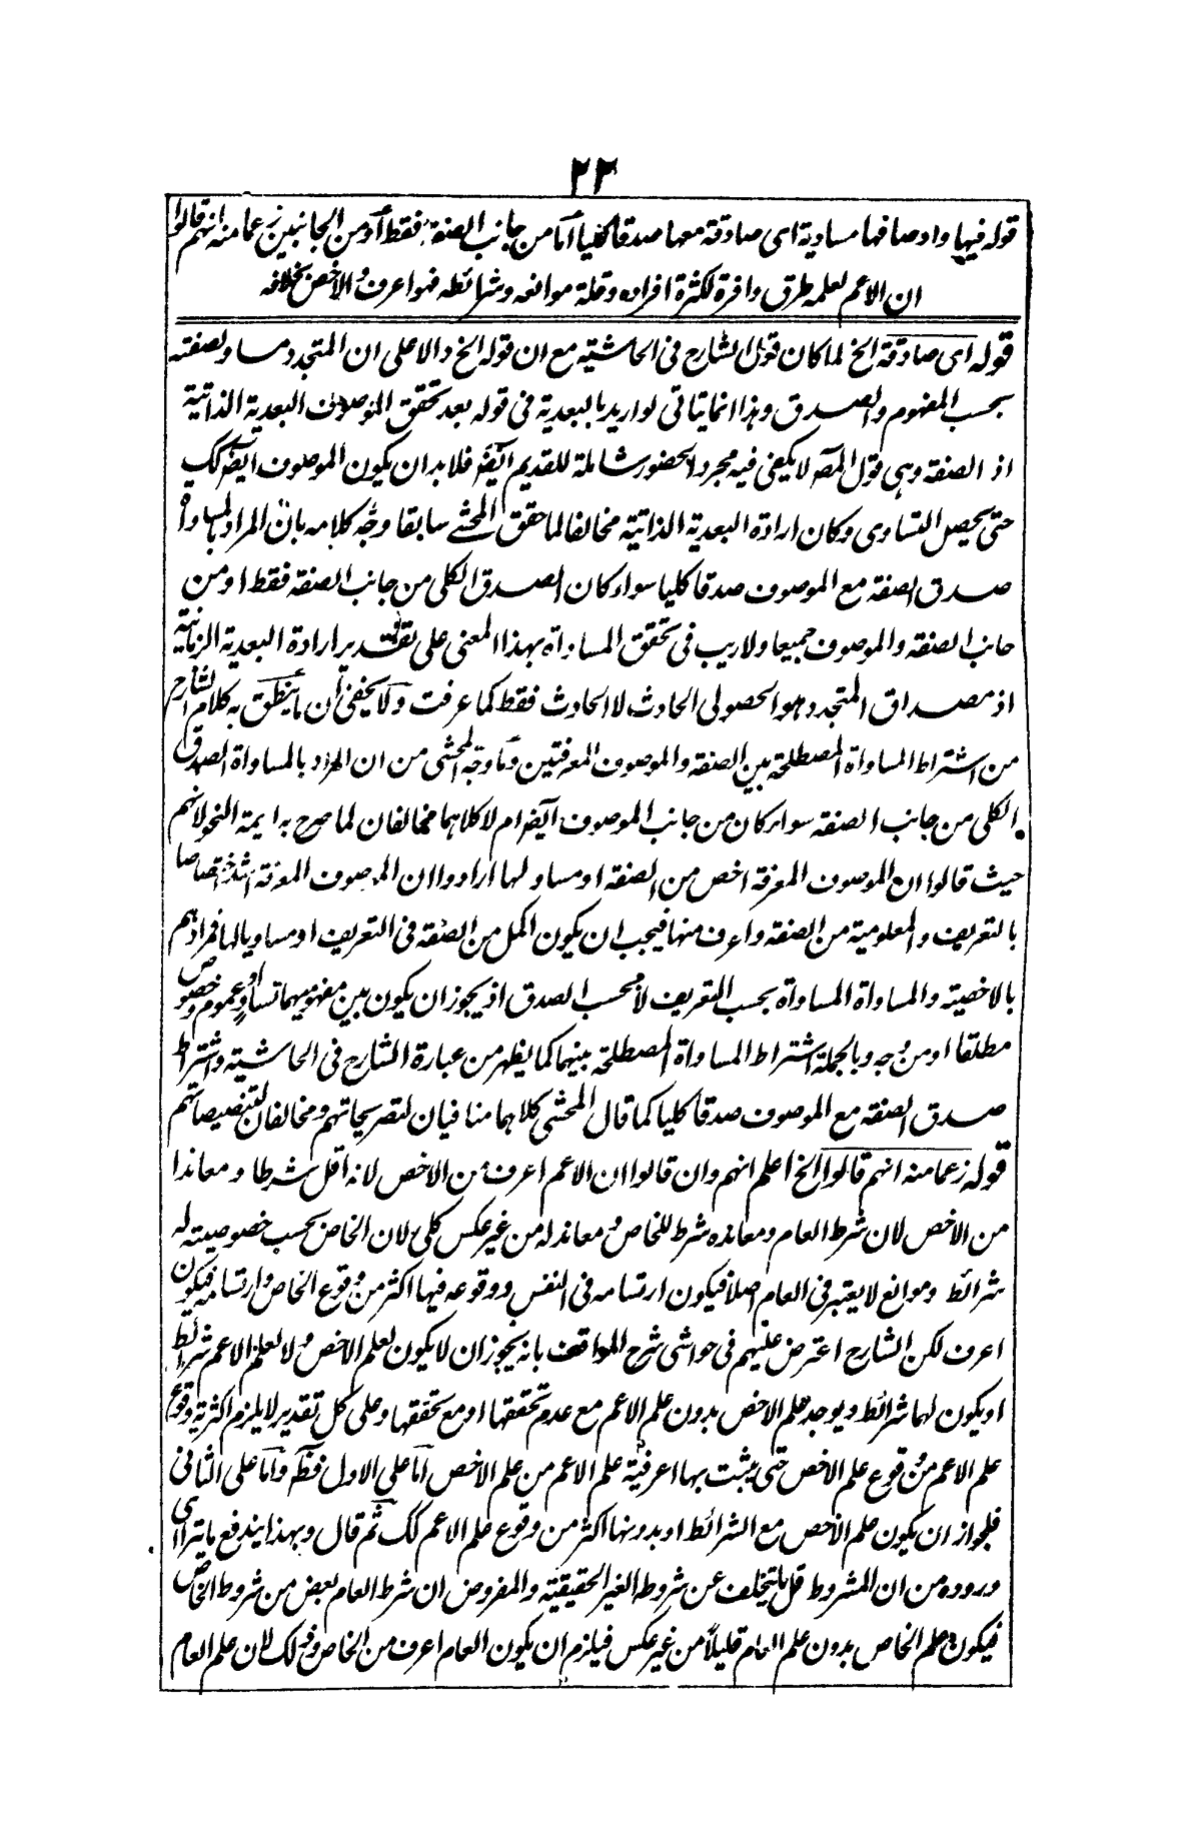 ٢٣
قوله فيها واوصافها مساوية اى صادقة معها صدقا كليا اما من جانب الصفة فقط أو من الجانبين زعما منه انهم قالوا
ان الاعم لعلمه طرق وافرة لكثرة افراده وقلة موانعه وشرائطه فهو اعرف والاخص بخلافه
قوله اى صادقة الخ لما كان قول الشارح فى الحاشية مع ان قوله الخ دالا على ان المتجدد مساو لصفته
بحسب المفهوم والصدق وهذا انما يتاتى لو اريد بالبعدية فى قوله بعد تحقق الموصوف البعدية الذاتية
اذ الصفة وهى قول المصه لا يكفى فيه مجرد الحضور شاملة للقديم ايضه فلا بد ان يكون الموصوف ايضه كك
حتى يحصل التساوى وكان ارادة البعدية الذاتية مخالفا لما حقق المحشے سابقا وجه كلامه بان المراد بالمساواة
صدق الصفة مع الموصوف صدقا كليا سواء كان الصدق الكلى من جانب الصفة فقط او من
جانب الصفة والموصوف جميعا ولا ريب فى تحقق المساواة بهذا المعنى على تقدير ارادة البعدية الزمانية
اذ مصداق المتجدد هو الحصولى الحادث لا الحادث فقط كما عرفت ولا يخفى أن ما ينطق به كلام الشارح
من اشتراط المساواة المصطلحة بين الصفة والموصوف المعرفتين وما وجه المحشى من ان المراد بالمساواة الصدق
الكلى من جانب الصفة سواء كان من جانب الموصوف ايضه ام لا كلاهما مخالفان لما صرح به ايمة النحو لانهم
حيث قالوا ان الموصوف المعرفة اخص من الصفة او مساو لها ارادوا ان الموصوف المعرفة اشد اختصاصا
بالتعريف والمعلومية من الصفة واعرف منها فيجب ان يكون اكمل من الصفة فى التعريف او مساويا لها فمرادهم
بالاخصية والمساواة المساواة بحسب التعريف لا بحسب الصدق اذ يجوز ان يكون بين مفهوميهما تساو او عموم وخصوص
مطلقا او من وجه وبالجملة اشتراط المساواة المصطلحة بينهما كما يظهر من عبارة الشارح فى الحاشية واشتراط
صدق الصفة مع الموصوف صدقا كليا كما قال المحشى كلاهما منافيان لتصريحاتهم ومخالفان لتنصيصاتهم
قوله زعما منه انهم قالوا الخ اعلم انهم وان قالوا ان الاعم اعرف من الاخص لانه اقل شرطا ومعاندا
من الاخص لان شرط العام ومعانده شرط للخاص ومعاند له من غير عكس كلى لان الخاص بحسب خصوصيته له
شرائط وموانع لا يعتبر فى العام اصلا فيكون ارتسامه فى النفس ووقوعه فيها اكثر من وقوع الخاص وارتسامه فيكون
اعرف لكن الشارح اعترض عليهم فى حواشى شرح المواقف بانه يجوز ان لا يكون لعلم الاخص ولا لعلم الاعم شرائط
او يكون لهما شرائط ويوجد علم الاخص بدون علم الاعم مع عدم تحققها او مع تحققها وعلى كل تقدير لا يلزم اكثرية وقوع
علم الاعم من وقوع علم الاخص حتى يثبت بها اعرفية علم الاعم من علم الاخص اما على الاول فظه واما على الثانى
فلجواز ان يكون علم الاخص مع الشرائط او بدونها اكثر من وقوع علم الاعم كك ثم قال وبهذا يندفع ما يترااى
وروده من ان المشروط قل ما يتخلف عن شروطه الغير الحقيقية والمفروض ان شرط العام بعض من شروط الخاص
فيكون علم الخاص بدون علم العام قليلا من غير عكس فيلزم ان يكون العام اعرف من الخاص وذلك لان علم العام